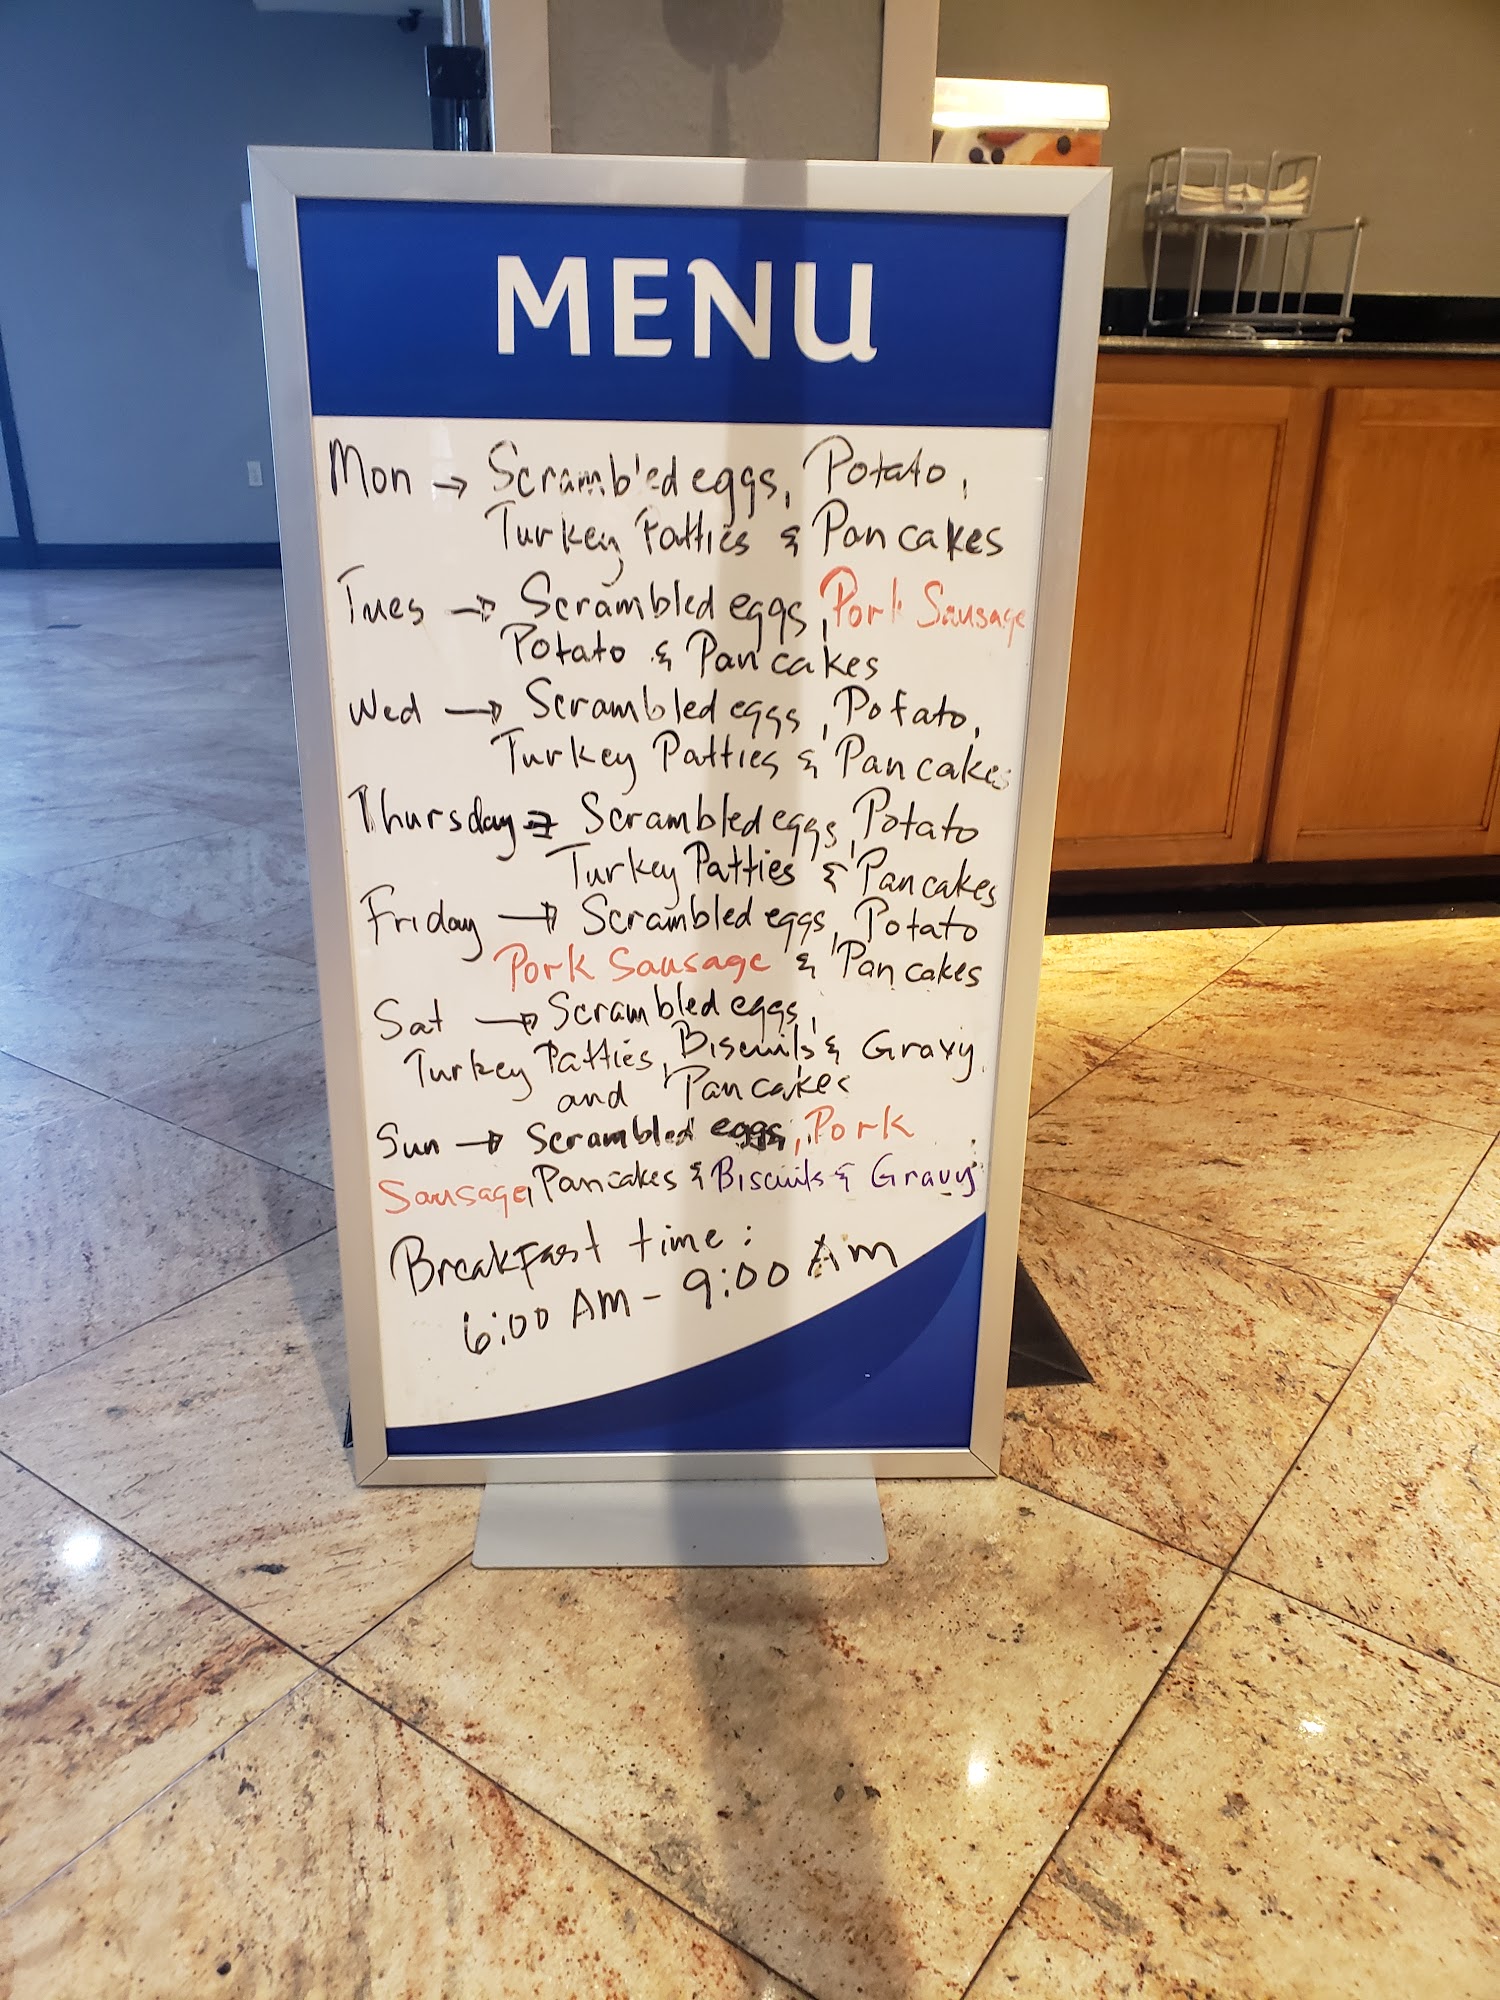 MENU
Mon → Scrambled eggs, Potato,
Turkey Patties & Pancakes
Tues → Scrambled eggs, Pork Sausage
Potato & Pancakes
Wed → Scrambled eggs, Potato,
Turkey Patties & Pancakes
Thursday → Scrambled eggs, Potato
Turkey Patties & Pancakes
Friday → Scrambled eggs, Potato
Pork Sausage & Pancakes
Sat → Scrambled eggs,
Turkey Patties, Biscuits & Gravy
and Pancakes
Sun → Scrambled eggs, Pork
Sausage, Pancakes & Biscuits & Gravy
Breakfast time:
6:00 AM - 9:00 AM